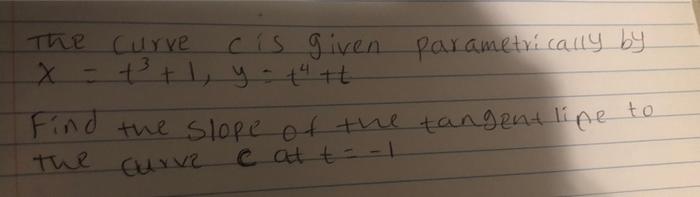 The curve c is given parametrically by
x = t³ + 1, y = t⁴ + t
Find the slope of the tangent line to
the curve c at t = -1